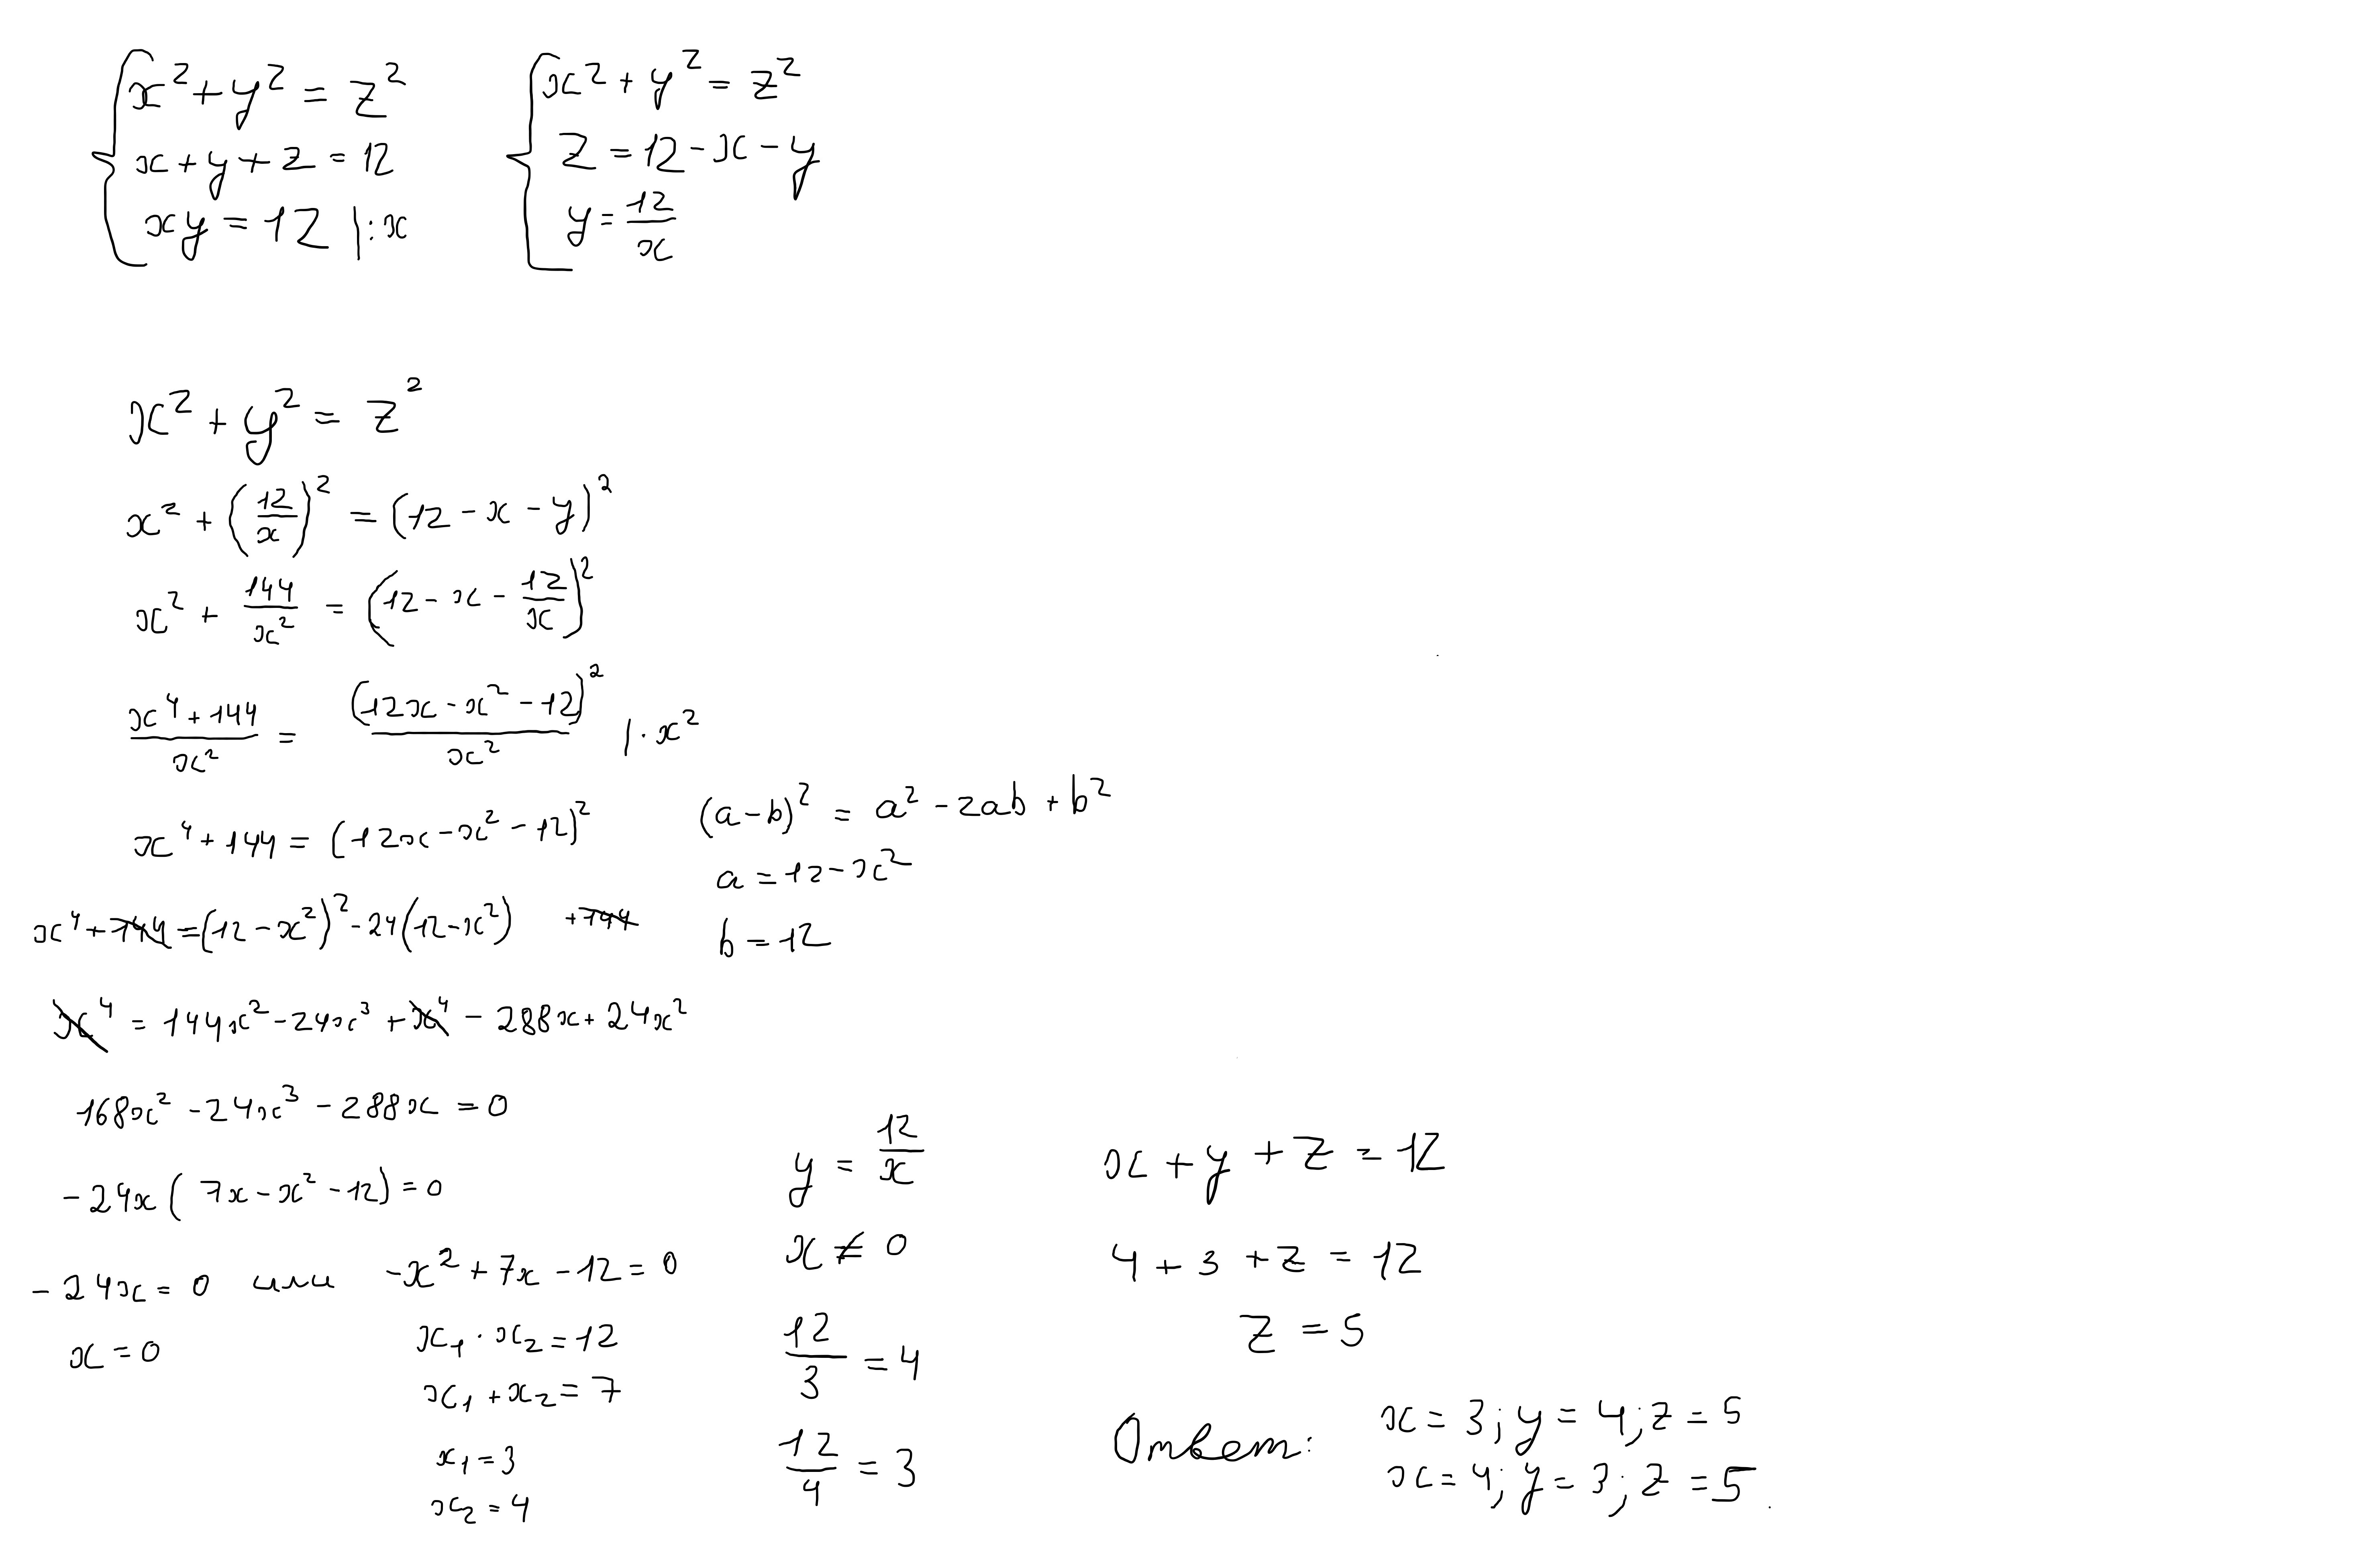 x² + y² = z²
x + y + z = 12
xy = 12 |:x
x² + y² = z²
z = 12 - x - y
y = 12/x
x² + y² = z²
x² + (12/x)² = (12 - x - y)²
x² + 144/x² = (12 - x - 12/x)²
(x⁴ + 144)/x² = (12x - x² - 12)²/x² |· x²
x⁴ + 144 = (12x - x² - 12)²
(a - b)² = a² - 2ab + b²
a = 12 - x²
b = 12
x⁴ + 144 = (12 - x²)² - 24(12 - x²) + 144
x⁴ = 144x² - 24x³ + x⁴ - 288x + 24x²
168x² - 24x³ - 288x = 0
-24x(7x - x² - 12) = 0
-24x = 0 или -x² + 7x - 12 = 0
x = 0
x₁ · x₂ = 12
x₁ + x₂ = 7
x₁ = 3
x₂ = 4
y = 12/x
x ≠ 0
12/3 = 4
12/4 = 3
x + y + z = 12
4 + 3 + z = 12
z = 5
Ответ: x = 3; y = 4; z = 5
x = 4; y = 3; z = 5.